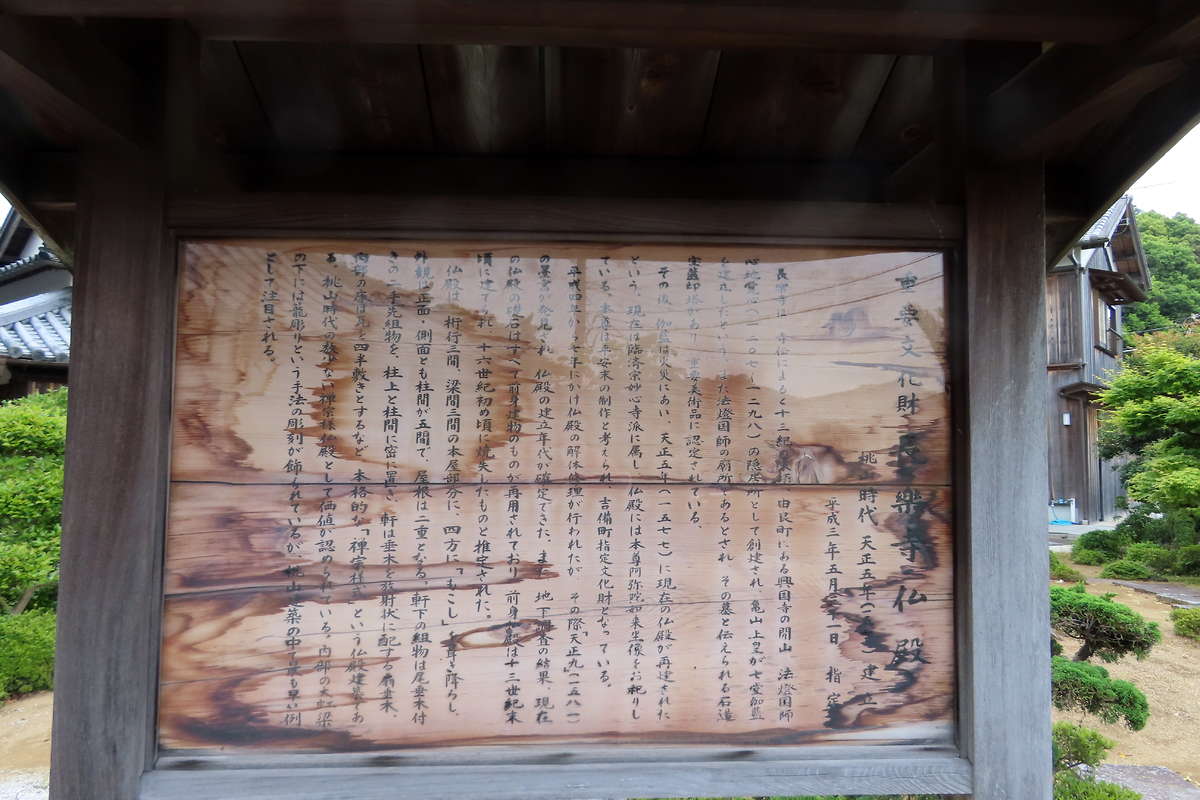 重要文化財 長樂寺 仏殿
桃山時代 天正五年 建立
平成三年五月三十一日 指定
長樂寺は、寺伝によると十三紀末頃、由良町にある興国寺の開山 法燈国師
心地覚心(一二〇七~一二九八)の隠居所として創建され、亀山上皇が七堂伽藍
を造立したという。また法燈国師の廟所であるとされ、その墓と伝えられる石造
宝篋印塔があり、重要美術品に認定されている。
その後、伽藍は火災にあい、天正五年(一五七七)に現在の仏殿が再建された
という。現在は臨済宗妙心寺派に属し、仏殿には本尊阿弥陀如来坐像をお祀りし
ている。本尊は平安末の制作と考えられ、吉備町指定文化財となっている。
平成四年から七年にかけ仏殿の解体修理が行われたが、その際「天正九」(一五八一)
の墨書が発見され、仏殿の建立年代が確定できた。また、地下調査の結果、現在
の仏殿の礎石はすべて前身建物のものが再用されており、前身仏殿は十三世紀末
頃に建てられ、十六世紀初め頃に焼失したものと推定された。
仏殿は、桁行三間、梁間三間の本屋部分に、四方に「もこし」を葺き降らし、
外観は正面・側面とも柱間が五間で、屋根は二重となる。軒下の組物は尾垂木付
きの二手先組物を、柱上と柱間に密に置き、軒は垂木を放射状に配する扇垂木、
内部の床は瓦を四半敷きとするなど、本格的な「禅宗様」という仏殿建築であ
る。桃山時代の数少ない禅宗様仏殿として価値が認められている。内部の大虹梁
の下には龍彫りという手法の彫刻が飾られているが、桃山建築の中で最も早い例
として注目される。